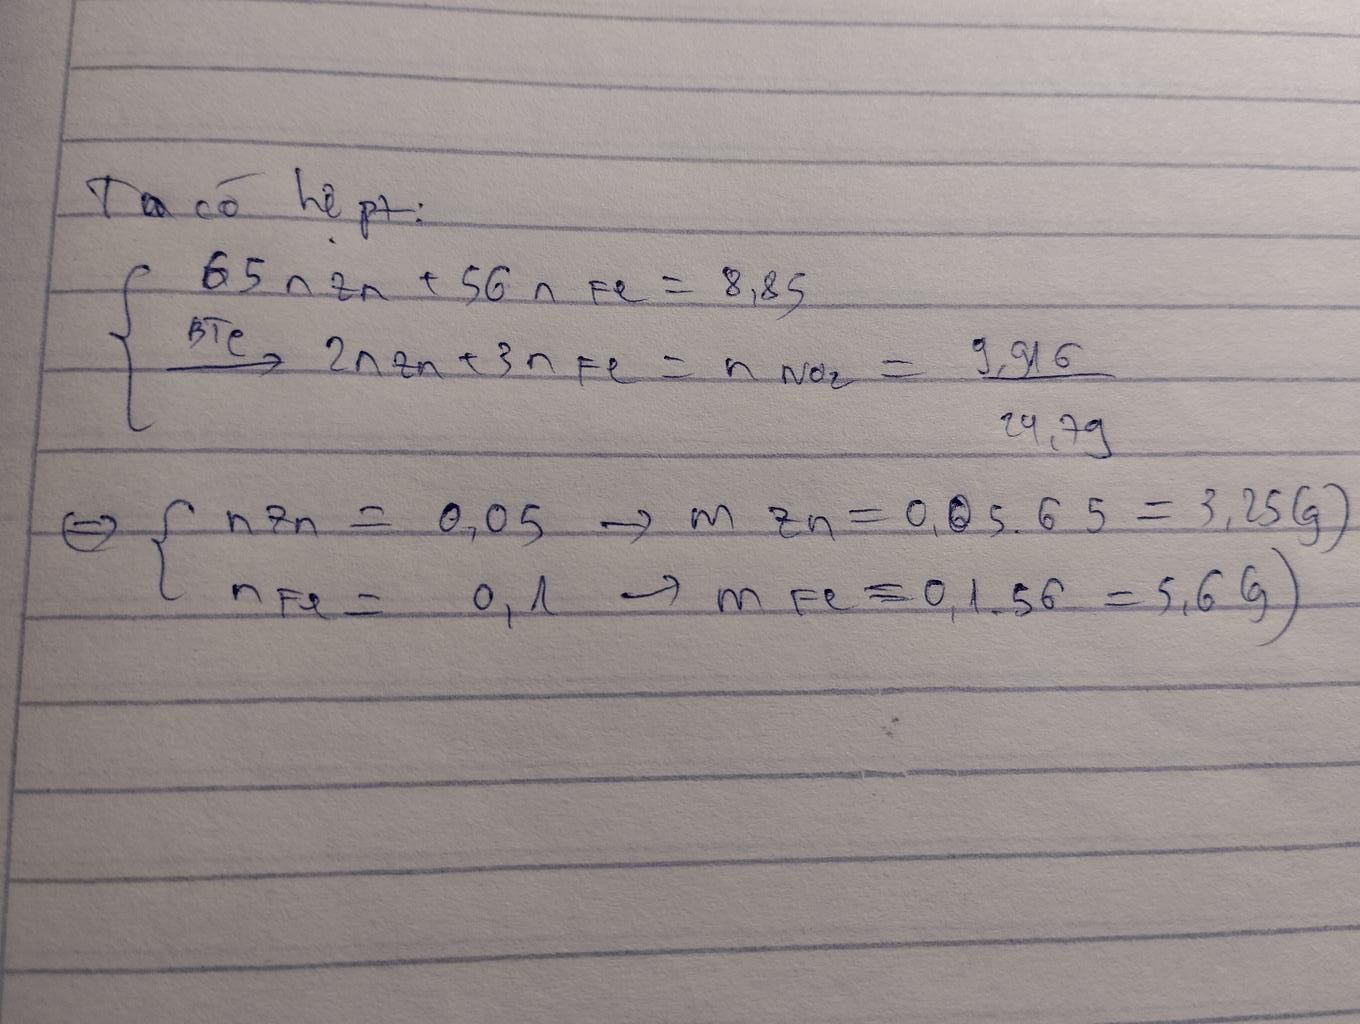 Ta có hệ pt:
65 n Zn + 56 n Fe = 8,85
BTe → 2n Zn + 3n Fe = n NO2 = 9,916 / 24,79
⇔ { n Zn = 0,05 → m Zn = 0,05.65 = 3,25 (g)
n Fe = 0,1 → m Fe = 0,1.56 = 5,6 (g)